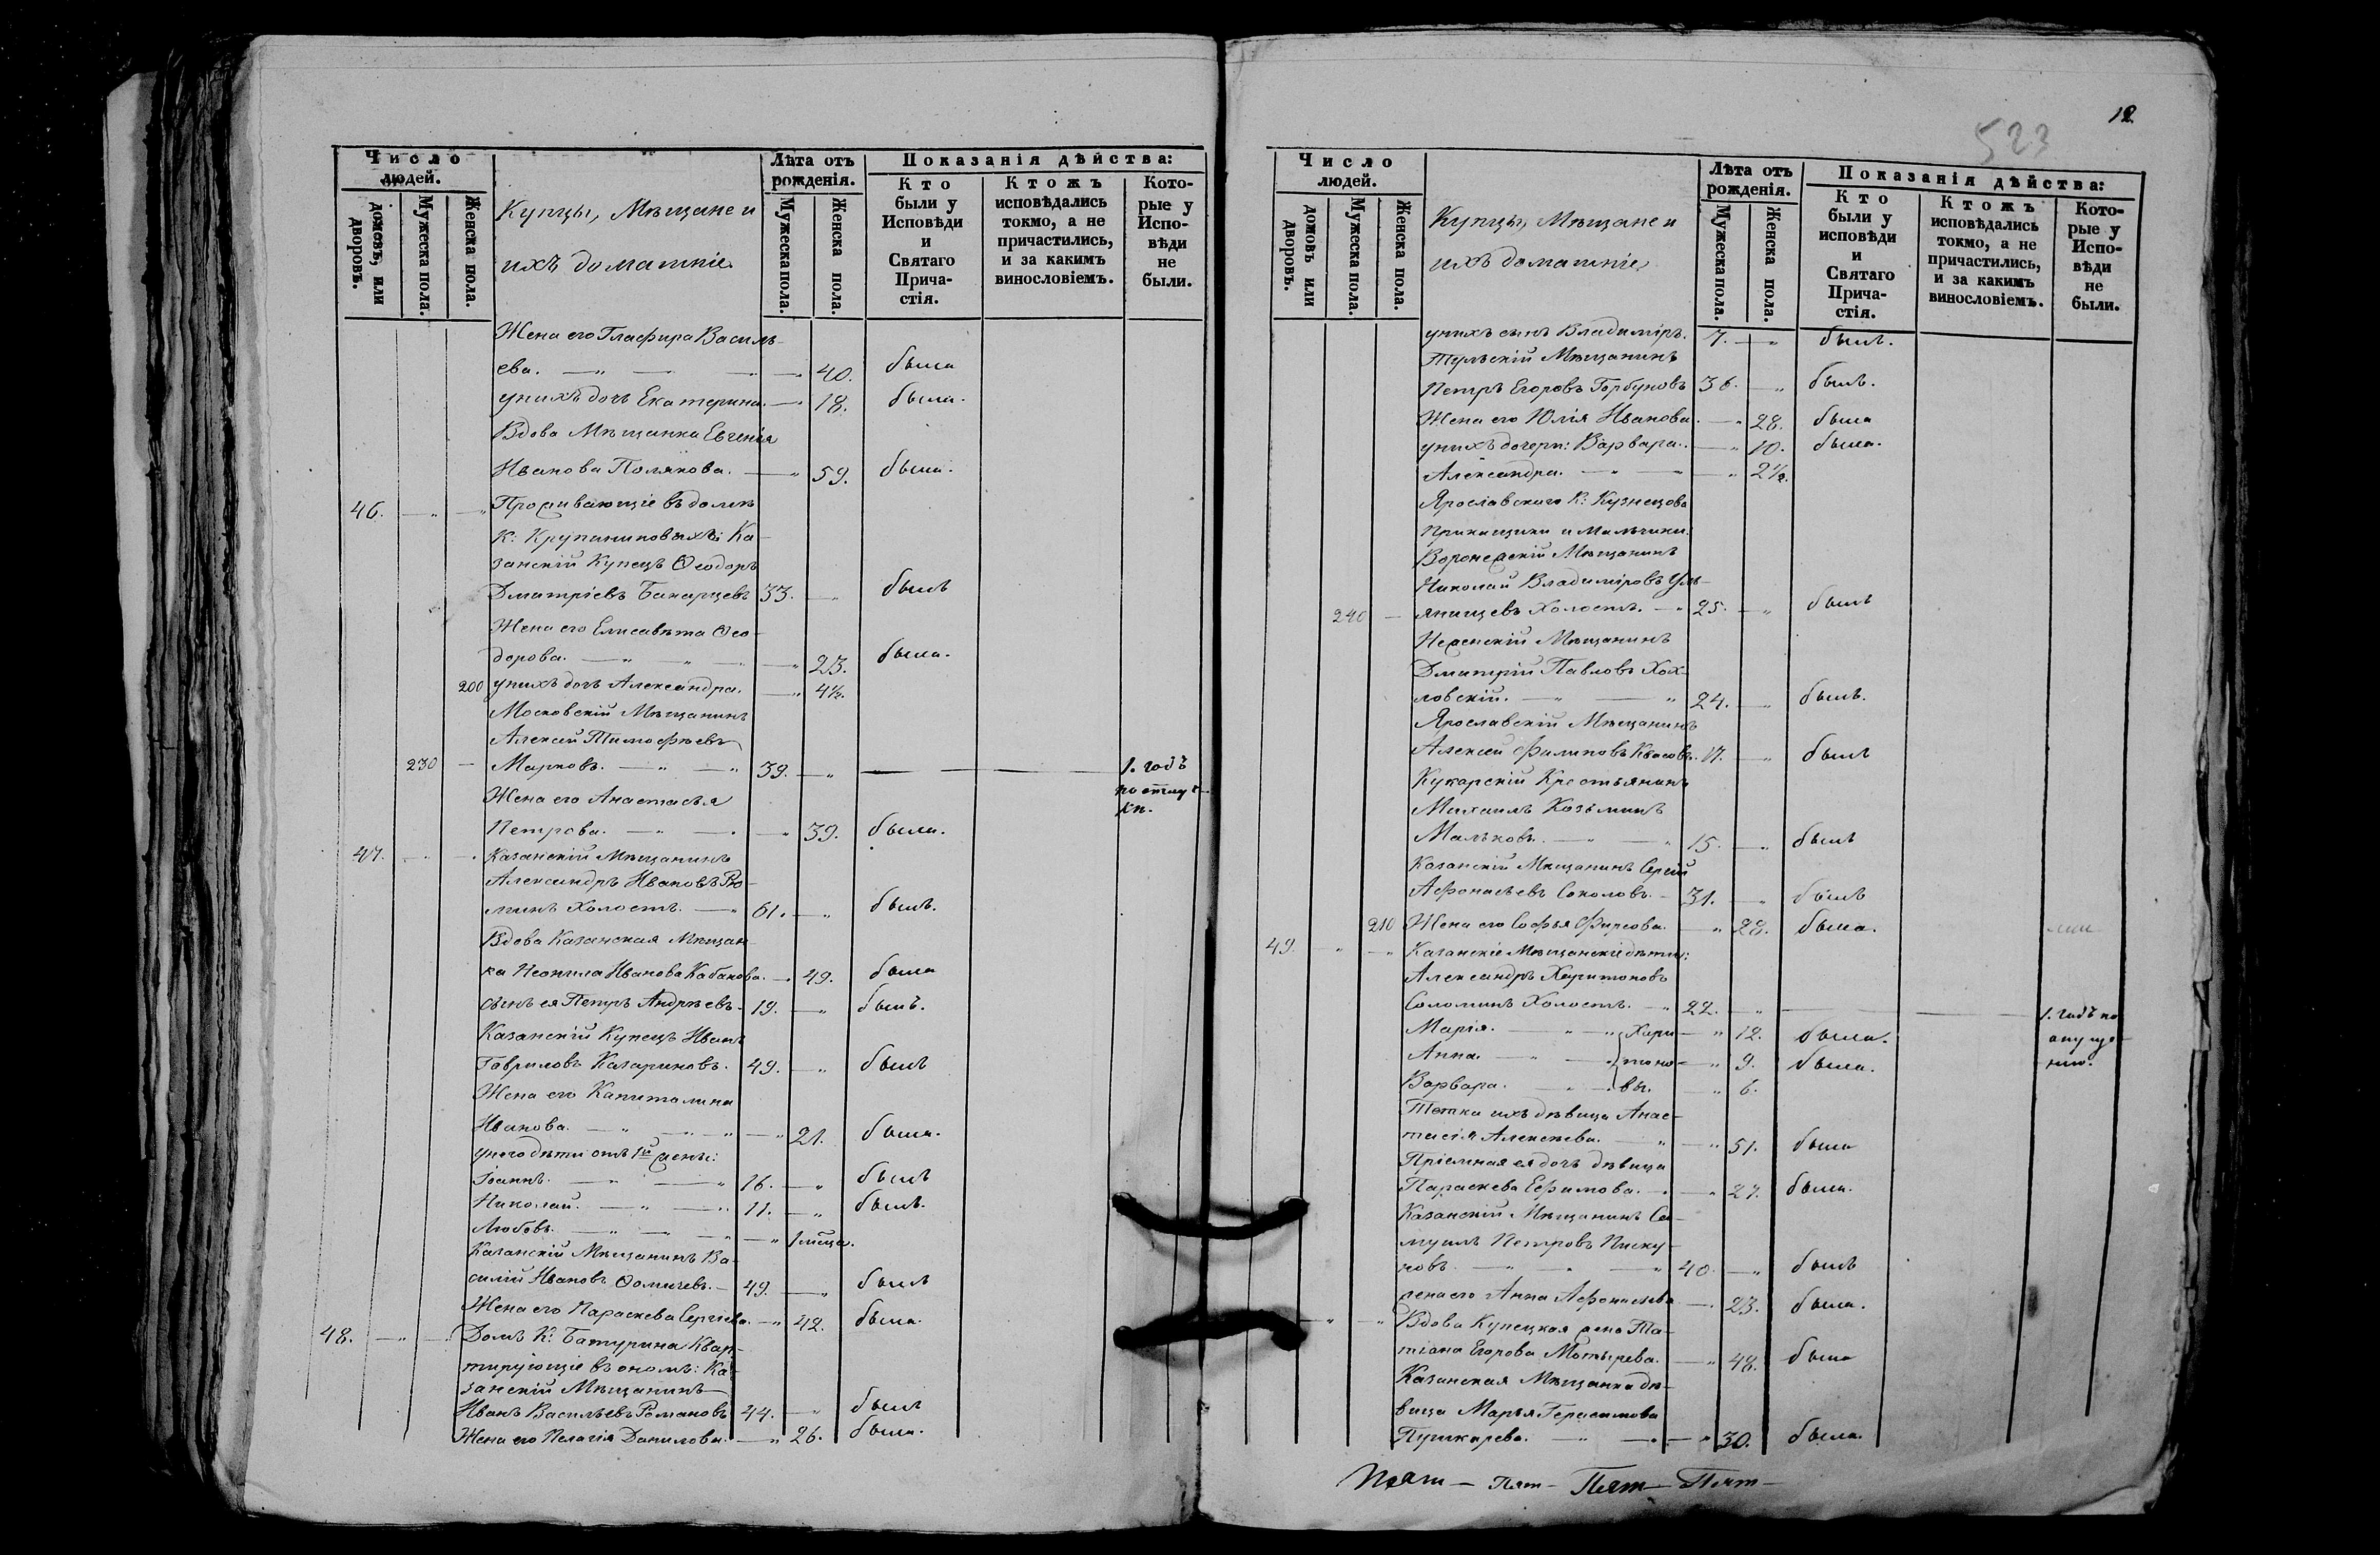 Число людей.
домовъ, или дворовъ.
Мужеска пола.
Женска пола.
Купцы, Мѣщане и
ихъ домашніе.
Лѣта отъ рожденія.
Мужеска пола.
Женска пола.
Показанія дѣйства:
Кто были у Исповѣди и Святаго Прича-стія.
Ктожъ исповѣдались токмо, а не причастились, и за какимъ винословіемъ.
Кото-рые у Испо-вѣди не были.
Жена его Глафира Василь-
ева. 40. была
у нихъ дочь Екатерина. 18. была.
Вдова Мѣщанка Евгенія
Иванова Полякова. 59. была.
46. Проживающіе въ домѣ
К: Крупениковыхъ: Ка-
занскій Купецъ Ѳеодоръ
Дмитріевъ 33. былъ
Жена его Елисавѣта Ѳео-
дорова. 23. была.
200 у нихъ дочь Александра. 4½.
Московскій Мѣщанинъ
Алексѣй Тимофѣевъ
230 Марковъ. 39. 1. годъ
по отлуч-
кѣ.
Жена его Анастасья
Петрова. 39. была.
47. Казанскій Мѣщанинъ
Александръ Ивановъ Рю-
минъ Холостъ. 61. былъ.
Вдова Казанская Мѣщан-
ка Неонила Иванова Кабанова. 49. была
сынъ ея Петръ Андрѣевъ. 19. былъ.
Казанскій Купецъ Иванъ
Гавриловъ Казариновъ. 49. былъ
Жена его Капиталина
Иванова. 21. была.
у него дѣти отъ 1й жены:
Іоаннъ. 16. былъ
Николай. 11. былъ.
Любовь. 1 мѣца.
Казанскій Мѣщанинъ Ва-
силій Ивановъ Ѳомичевъ. 49. былъ
Жена его Параскева Сергѣева. 42. была.
48. Домъ К: Батурина Квар-
тирующіе въ ономъ: Ка-
занскій Мѣщанинъ
Иванъ Васильевъ Романовъ 44. былъ
Жена его Пелагія Данилова. 26. была.
12
523
Число людей.
домовъ или дворовъ.
Мужеска пола.
Женска пола.
Купцы, Мѣщане и
ихъ домашніе.
Лѣта отъ рожденія.
Мужеска пола.
Женска пола.
Показанія дѣйства:
Кто были у исповѣди и Святаго Прича-стія.
Ктожъ исповѣдались токмо, а не причастились, и за какимъ винословіемъ.
Кото-рые у Испо-вѣди не были.
у нихъ сынъ Владиміръ. 7. былъ.
Тульскій Мѣщанинъ
Петръ Егоровъ Горбуновъ 36. былъ.
Жена его Юлія Иванова. 28. была
у нихъ дочери: Варвара. 10. была.
Александра. 2½.
Ярославскаго К: Кузнецова
Прикащики и Мальчики:
Воронежскій Мѣщанинъ
Николай Владиміровъ Уль-
240 янищевъ Холостъ. 25. былъ
Неженскій Мѣщанинъ
Дмитрій Павловъ Хох-
ловскій. 24. былъ.
Ярославскій Мѣщанинъ
Алексѣй Филиповъ Квасовъ. 17. былъ
Кукарскій Крестьянинъ
Михаилъ Козьминъ
Мальковъ. 15. былъ
Казанскій Мѣщанинъ Сергій
Афонасьевъ Соколовъ. 31. былъ
210 Жена его Софья Фирсова. 28. была.
49. Казанскіе Мѣщанскіе дѣти:
Александръ Харитоновъ
Соломинъ Холостъ. 22. 1. годъ по
опуще-
нію.
Марія. Хари- 12. была.
Анна. тоно- 9. была.
Варвара. вы. 6.
Тетка ихъ дѣвица Анас-
тасія Алексѣева. 51. была
Пріемная ея дочь дѣвица
Параскева Ефимова. 27. была.
Казанскій Мѣщанинъ Са-
муилъ Петровъ Писку-
новъ. 40. былъ
жена его Анна Афонасьева 23. была.
Вдова Купецкая жена Та-
тіана Егорова 48. была
Казанская Мѣщанка дѣ-
вица Марья Герасимова
Пушкарева. 30. была.
Пят - Пят -